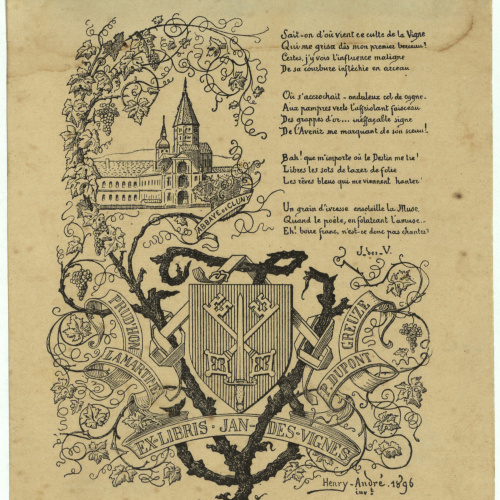 Sait-on d'où vient ce culte de la Vigne
Qui me grisa dès mon premier berceau!
Certes, j'y vois l'influence maligne
De sa courbure infléchie en arceau.
Où s'accrochait - onduleux col de cygne -
Aux pampres verts l'affriolant faisceau
Des grappes d'or... ineffaçable signe
De l'Avenir me marquant de son sceau!
Bah! que m'importe où le Destin me lie!
Libres les sots de taxer de folie
Les rêves bleus qui me viennent hanter!
Un grain d'ivresse ensoleille la Muse,
Quand le poète, en folâtrant s'amuse...
Eh! boire franc, n'est-ce donc pas chanter?
J. des V.
ABBAYE DE CLUNY
PRUD'HON
LAMARTINE
GREUZE
P. DUPONT
EX-LIBRIS · JAN-DES-VIGNES
Henry-André. 1896
inv.t